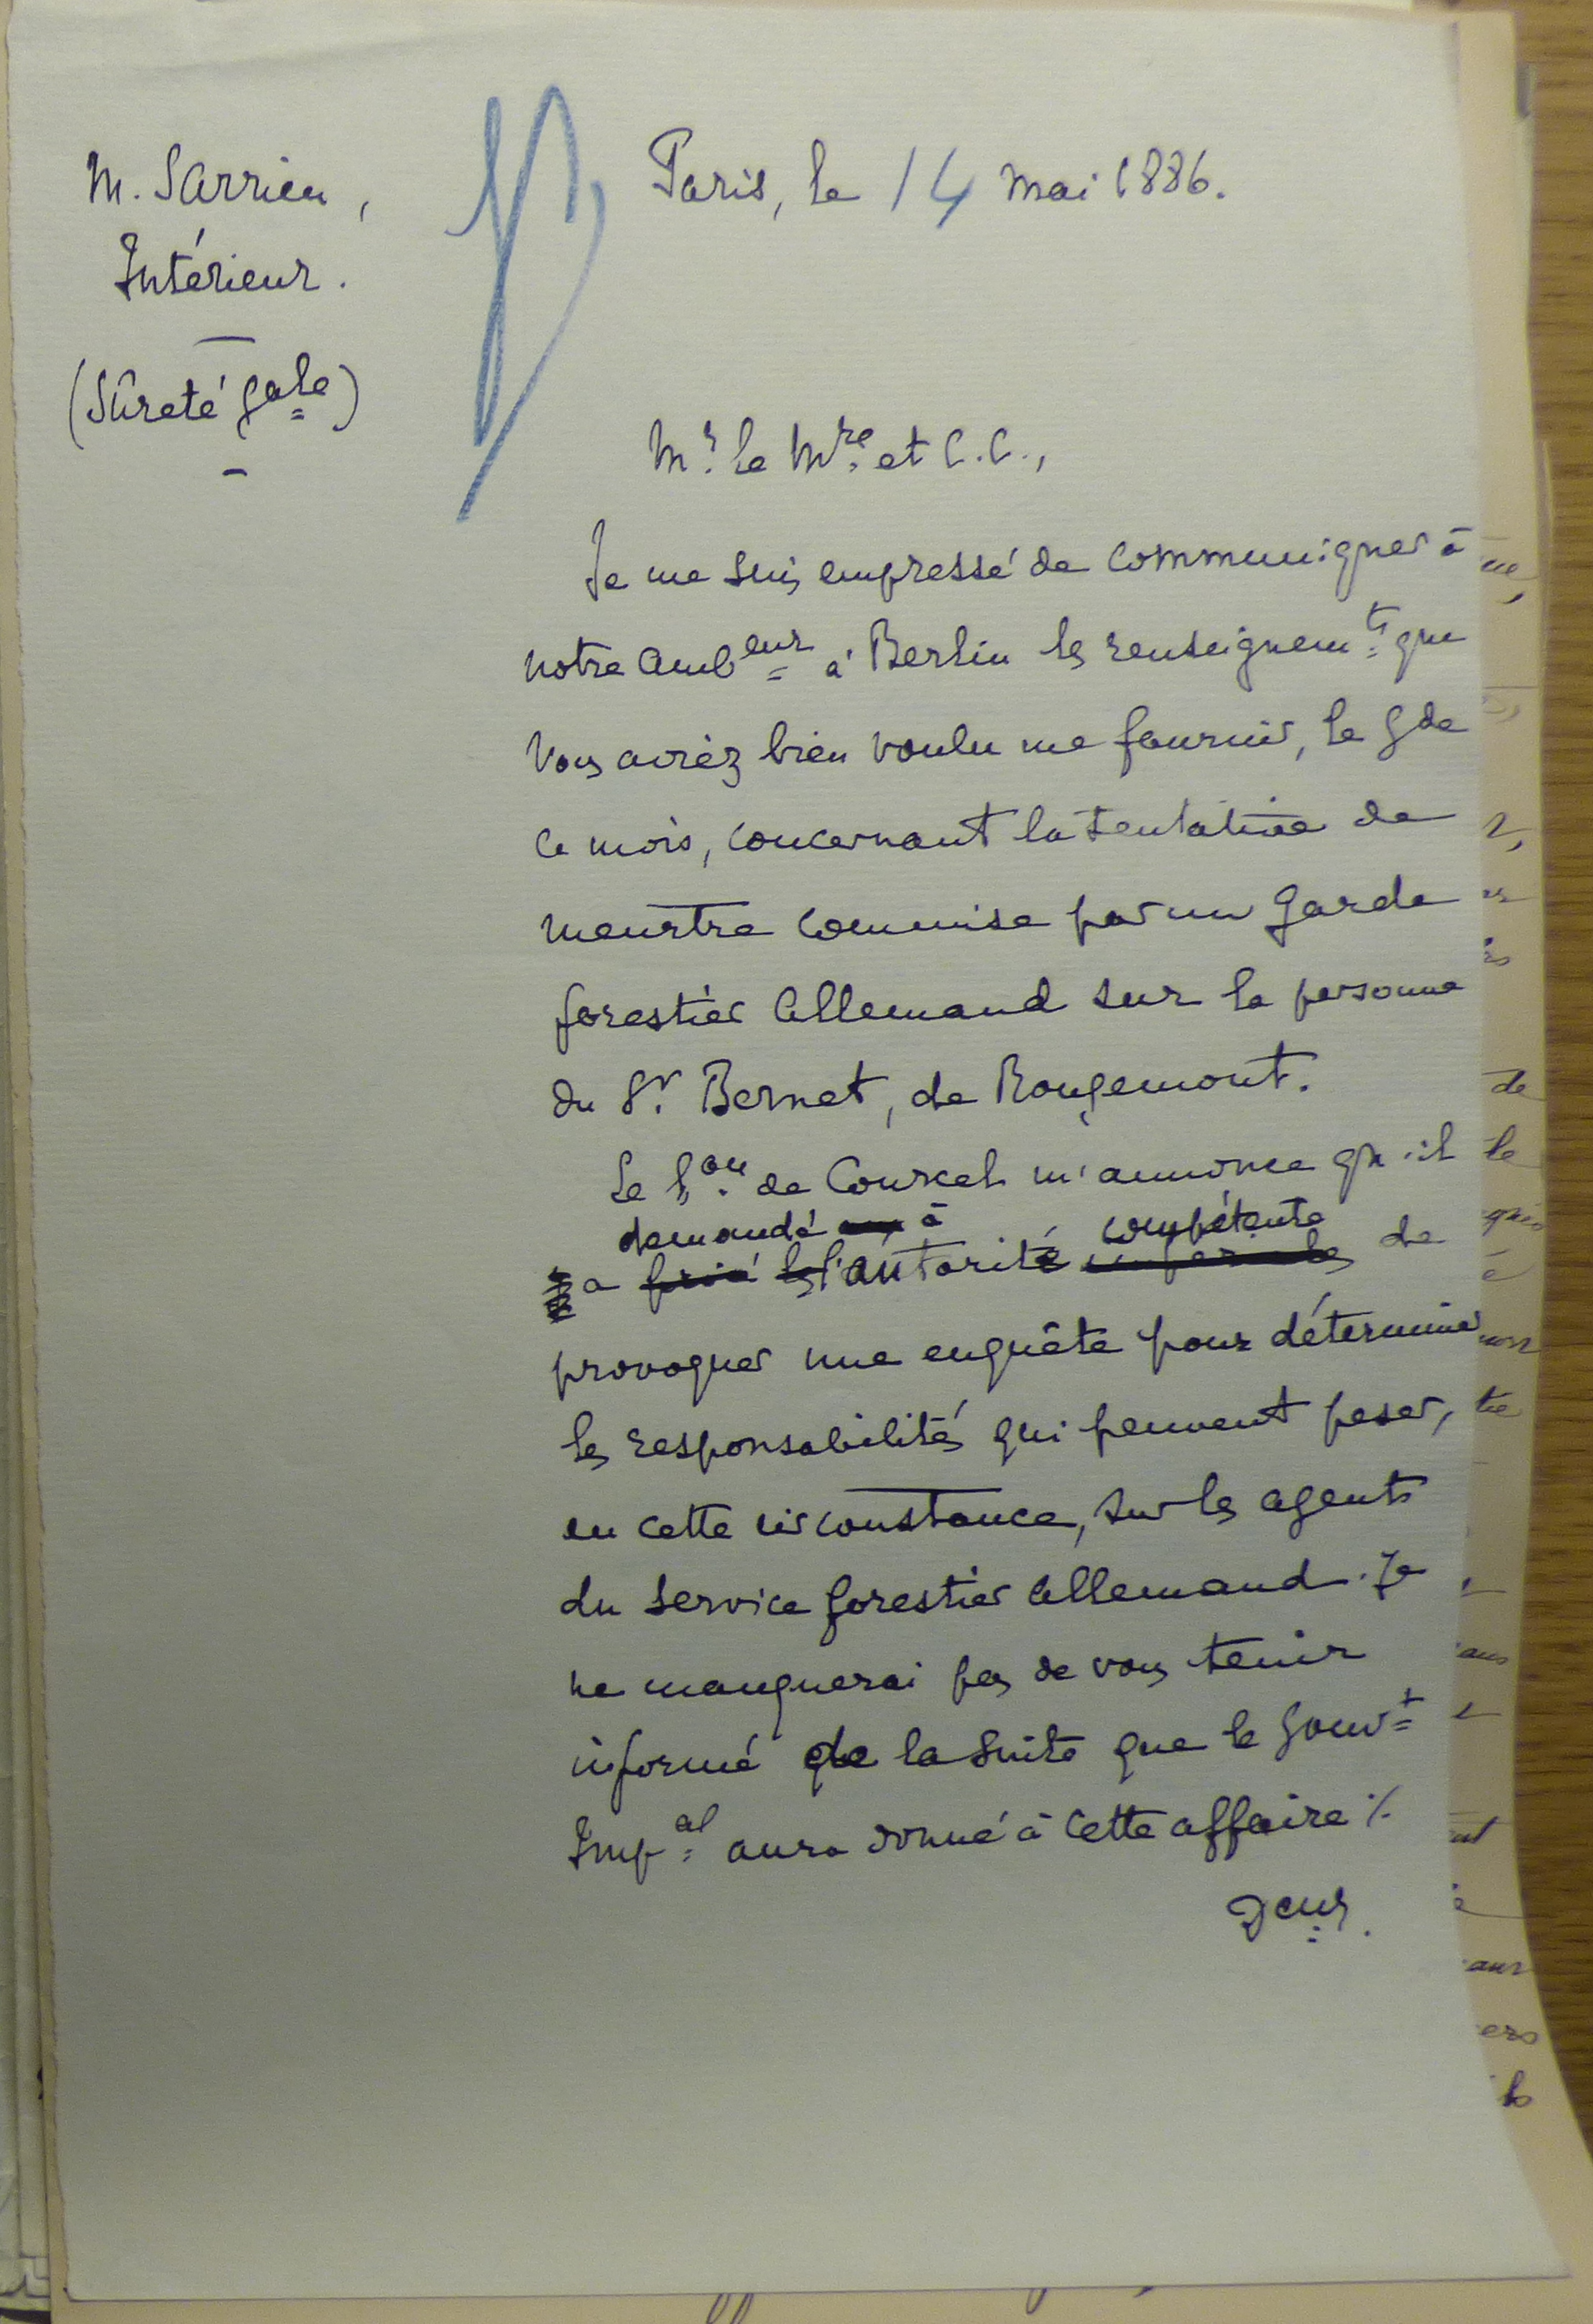 M. Sarrien,
Intérieur.
(Sûreté gale)
Paris, le 14 mai 1886.
Mr. le Mre et C.C.,
Je me suis empressé de communiquer à
notre Ambeur à Berlin les renseignemts que
vous aviez bien voulu me fournir, le 9 de
ce mois, concernant la tentative de
meurtre commise par un garde
forestier allemand sur la personne
du Sr. Bernet, de Rougemont.
Le Bon de Courcel m'annonce qu'il
demandé à compétente
a prié les l'autorité de
provoquer une enquête pour déterminer
les responsabilités qui peuvent peser,
en cette circonstance, sur les agents
du service forestier allemand. Je
ne manquerai pas de vous tenir
informé de la suite que le Gouvt
Impal aura donné à cette affaire ./.